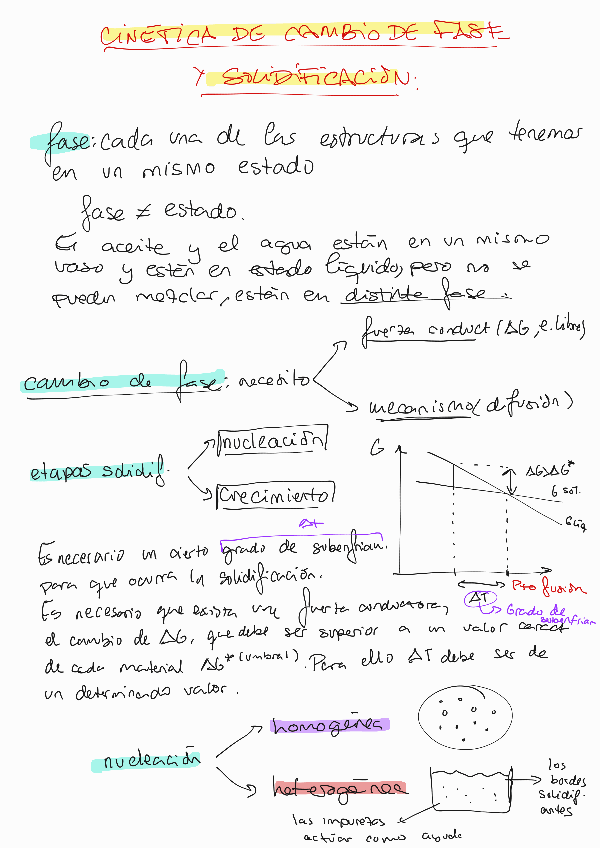 CINÉTICA DE CAMBIO DE FASE
Y SOLIDIFICACIÓN.
fase: cada una de las estructuras que tenemos
en un mismo estado
fase ≠ estado.
El aceite y el agua están en un mismo
vaso y están en estado líquido, pero no se
pueden mezclar, están en distinta fase.
fuerza conduct (ΔG, e. libre)
cambio de fase: necesito
mecanismo (difusión)
etapas solidif.
nucleación
crecimiento
G
ΔG>ΔG*
G sol.
G liq
Pto fusión
ΔT
Grado de
subenfrian
Δt
Es necesario un cierto grado de subenfrian.
para que ocurra la solidificación.
Es necesario que exista una fuerza conductora,
el cambio de ΔG, que debe ser superior a un valor caract
de cada material ΔG* (umbral). Para ello ΔT debe ser de
un determinado valor.
nucleación
homogénea
heterogénea
las impurezas
actúan como ayuda
los
bordes
solidif.
antes